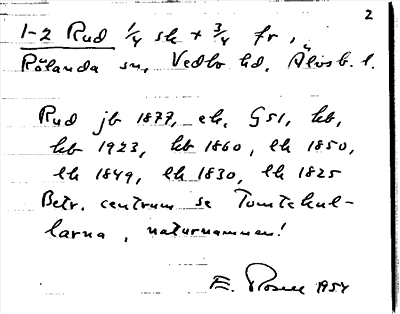 2
1-2 Rud 1/4 sk + 3/4 fr,
Rölanda sn, Vedbo hd, Älvsb. l.
Rud jb 1877, ek, G51, kb,
kb 1923, kb 1860, lk 1850,
lk 1849, lk 1830, lk 1825
Betr. centrum se Tomtekul-
larna, naturnamnen!
E. Rosell 1954